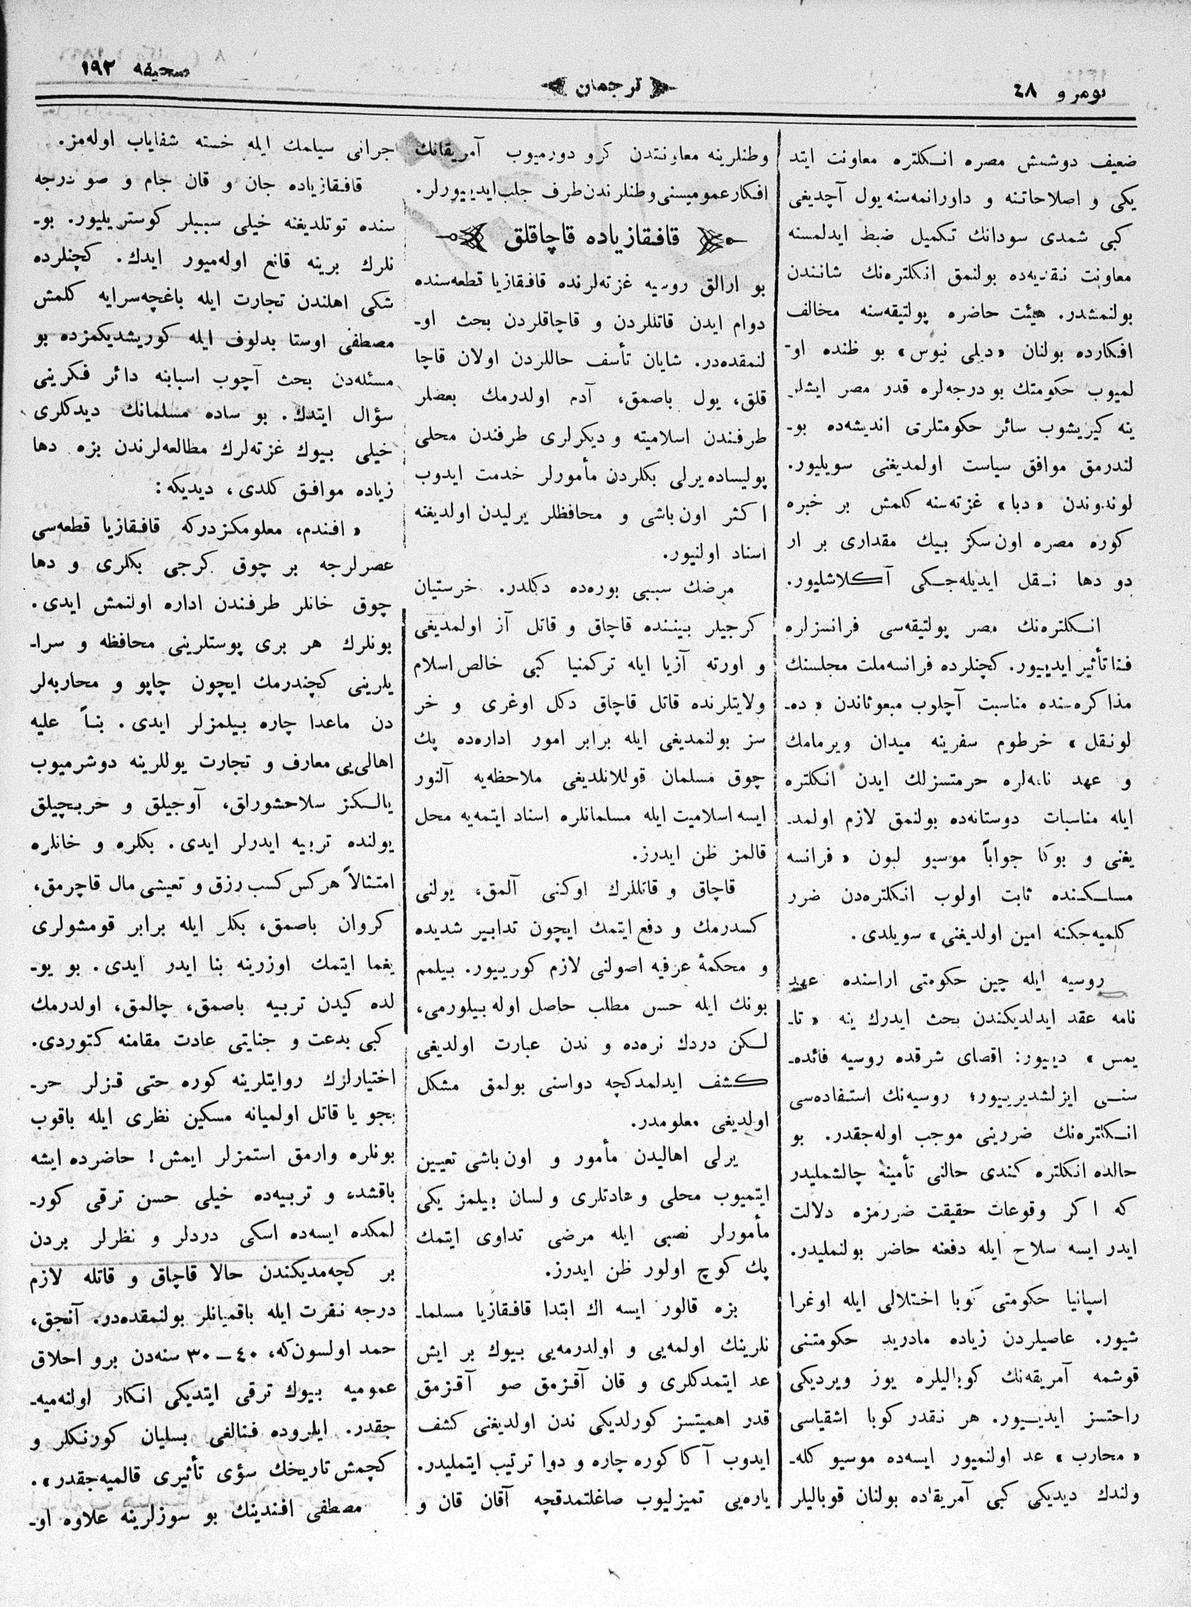 نومرو ٤٨
ترجمان
صحیفه ١٩٢
ضعیف دوشمش مصره انکلتره معاونت ایتد
یکی و اصلاحاتنه و داورانمه‌سنه یول آچدیغی
کبی شمدی سودانك تکمیل ضبط ایدلمسنه
معاونت نقدیه‌ده بولنمق انکلتره‌نك شانندن
بولنمشدر. هیئت حاضره پولتیقه‌سنه مخالف
افکارده بولنان «دیلی نیوس» بو ظنده او-
لمیوب حکومتك بو درجه‌لره قدر مصر ایشلر
ینه کیریشوب سائر حکومتلری اندیشه‌ده بو-
لندرمق موافق سیاست اولمدیغنی سویلیور.
لوندوندن «دبا» غزته‌سنه کلمش بر خبره
کوره مصره اون سکز بیك مقداری بر ار
دو دها نقل ایدیله‌جکی آکلاشلیور.
انکلتره‌نك مصر پولتیقه‌سی فرانسزلره
فنا تأثیر ایدییور. کچنلرده فرانسه ملت مجلسنك
مذاکره‌سنده مناسبت آچلوب مبعوثاندن «ده-
لونقل» خرطوم سفرینه میدان ویرمامك
و عهد نامه‌لره حرمتسزلك ایدن انکلتره
ایله مناسبات دوستانه‌ده بولنمق لازم اولمد-
یغنی و بوکا جواباً موسیو لبون «فرانسه
مسلکنده ثابت اولوب انکلتره‌دن ضرر
کلمیه‌جکنه امین اولدیغنی» سویلدی.
روسیه ایله چین حکومتی اراسنده عهد
نامه عقد ایدلدیکندن بحث ایدرك ینه «تا-
یمس» دییور: اقصای شرقده روسیه فائده-
سنی ایزلشدیرییور؛ روسیه‌نك استفاده‌سی
انکلتره‌نك ضررینی موجب اوله‌جقدر. بو
حالده انکلتره کندی حالنی تأمینه چالشملیدر
که اکر وقوعات حقیقت ضررمزه دلالت
ایدر ایسه سلاح ایله دفعنه حاضر بولنملیدر.
اسپانیا حکومتی کوبا اختلالی ایله اوغرا
شیور. عاصیلردن زیاده مادرید حکومتنی
قوشمه آمریقه‌نك کوبالیلره یوز ویردیکی
راحتسز ایدییور. هر نقدر کوبا اشقیاسی
«محارب» عد اولنمیور ایسه‌ده موسیو کله-
ولندك دیدیکی کبی آمریقاده بولنان قوبالیلر
وطنلرینه معاونتدن کرو دورمیوب آمریقانك
افکار عمومیسنی وطنلرندن طرف جلب ایدییورلر.
قافقازیاده قاچاقلق
بو ارالق روسیه غزته‌لرنده قافقازیا قطعه‌سنده
دوام ایدن قاتللردن و قاچاقلردن بحث او-
لنمقده‌در. شایان تأسف حاللردن اولان قاچا
قلق، یول باصمق، آدم اولدرمك بعضلر
طرفندن اسلامیته و دیکرلری طرفندن محلی
پولیساده یرلی بکلردن مأمورلر خدمت ایدوب
اکثر اون باشی و محافظلر یرلیدن اولدیغنه
اسناد اولنیور.
مرضك سببی بوره‌ده دکلدر. خرستیان
کرجیلر بیننده قاچاق و قاتل آز اولمدیغی
و اورته آزیا ایله ترکمنیا کبی خالص اسلام
ولایتلرنده قاتل قاچاق دکل اوغری و خر
سز بولنمدیغی ایله برابر امور اداره‌ده پك
چوق مسلمان قوللانلدیغی ملاحظه‌یه آلنور
ایسه اسلامیت ایله مسلمانلره اسناد ایتمه‌یه محل
قالمز ظن ایدرز.
قاچاق و قاتللرك اوکنی آلمق، یولنی
کسدرمك و دفع ایتمك ایچون تدابیر شدیده
و محکمهٔ عرفیه اصولنی لازم کورییور. بیلمم
بونك ایله حسن مطلب حاصل اوله بیلورمی،
لکن دردك نره‌ده و ندن عبارت اولدیغی
کشف ایدلمدکچه دواسنی بولمق مشکل
اولدیغی معلومدر.
یرلی اهالیدن مأمور و اون باشی تعیین
ایتمیوب محلی و عادتلری و لسان بیلمز یکی
مأمورلر نصبی ایله مرضی تداوی ایتمك
پك کوچ اولور ظن ایدرز.
بزه قالور ایسه اك ابتدا قافقازیا مسلما-
نلرینك اولمه‌یی و اولدرمه‌یی بیوك بر ایش
عد ایتمدکلری و قان آقزمق صو آقزمق
قدر اهمیتسز کورلدیکی ندن اولدیغنی کشف
ایدوب آکا کوره چاره و دوا ترتیب ایتملیدر.
یاره‌یی تمیزلیوب صاغلتمدقچه آقان قان و
جرانی سیلمك ایله خسته شفایاب اوله‌مز.
قافقازیاده جان و قان جام و صو درجه
سنده توتلدیغنه خیلی سببلر کوستریلیور. بو-
نلرك برینه قانع اوله‌میور ایدك. کچنلرده
شکی اهلندن تجارت ایله باغچه‌سرایه کلمش
مصطفی اوستا بدلوف ایله کوریشدیکمزده بو
مسئله‌دن بحث آچوب اسبابنه دائر فکرینی
سؤال ایتدك. بو ساده مسلمانك دیدکلری
خیلی بیوك غزته‌لرك مطالعه‌لرندن بزه دها
زیاده موافق کلدی، دیدیکه:
«افندم، معلومکزدرکه قافقازیا قطعه‌سی
عصرلرجه بر چوق کرجی بکلری و دها
چوق خانلر طرفندن اداره اولنمش ایدی.
بونلرك هر بری پوستلرینی محافظه و سرا-
یلرینی کچندرمك ایچون چاپو و محاربه‌لر
دن ماعدا چاره بیلمزلر ایدی. بناً علیه
اهالی‌یی معارف و تجارت یوللرینه دوشرمیوب
یالکز سلاحشورلق، آوجیلق و حربجیلق
یولنده تربیه ایدرلر ایدی. بکلره و خانلره
امتثالاً هر کس کسب رزق و تعیشی مال قاچرمق،
کروان باصمق، بکلر ایله برابر قومشولری
یغما ایتمك اوزرینه بنا ایدر ایدی. بو یو-
لده کیدن تربیه باصمق، چالمق، اولدرمك
کبی بدعت و جنایتی عادت مقامنه کتوردی.
اختیارلرك روایتلرینه کوره حتی قزلر حر-
بجو یا قاتل اولمیانه مسکین نظری ایله باقوب
بونلره وارمق استمزلر ایمش! حاضرده ایشه
باقشده و تربیه‌ده خیلی حسن ترقی کور-
لمکده ایسه‌ده اسکی دردلر و نظرلر بردن
بر کچه‌مدیکندن حالا قاچاق و قاتله لازم
درجه نفرت ایله باقمیانلر بولنمقده‌در. آنجق،
حمد اولسون که، ٤٠—٣٠ سنه‌دن برو اخلاق
عمومیه بیوك ترقی ایتدیکی انکار اولنه‌میه-
جقدر. ایلروده فنالغی بسلیان کورنکلر و
کچمش تاریخك سؤی تأثیری قالمیه‌جقدر».
مصطفی افندینك بو سوزلرینه علاوه او-